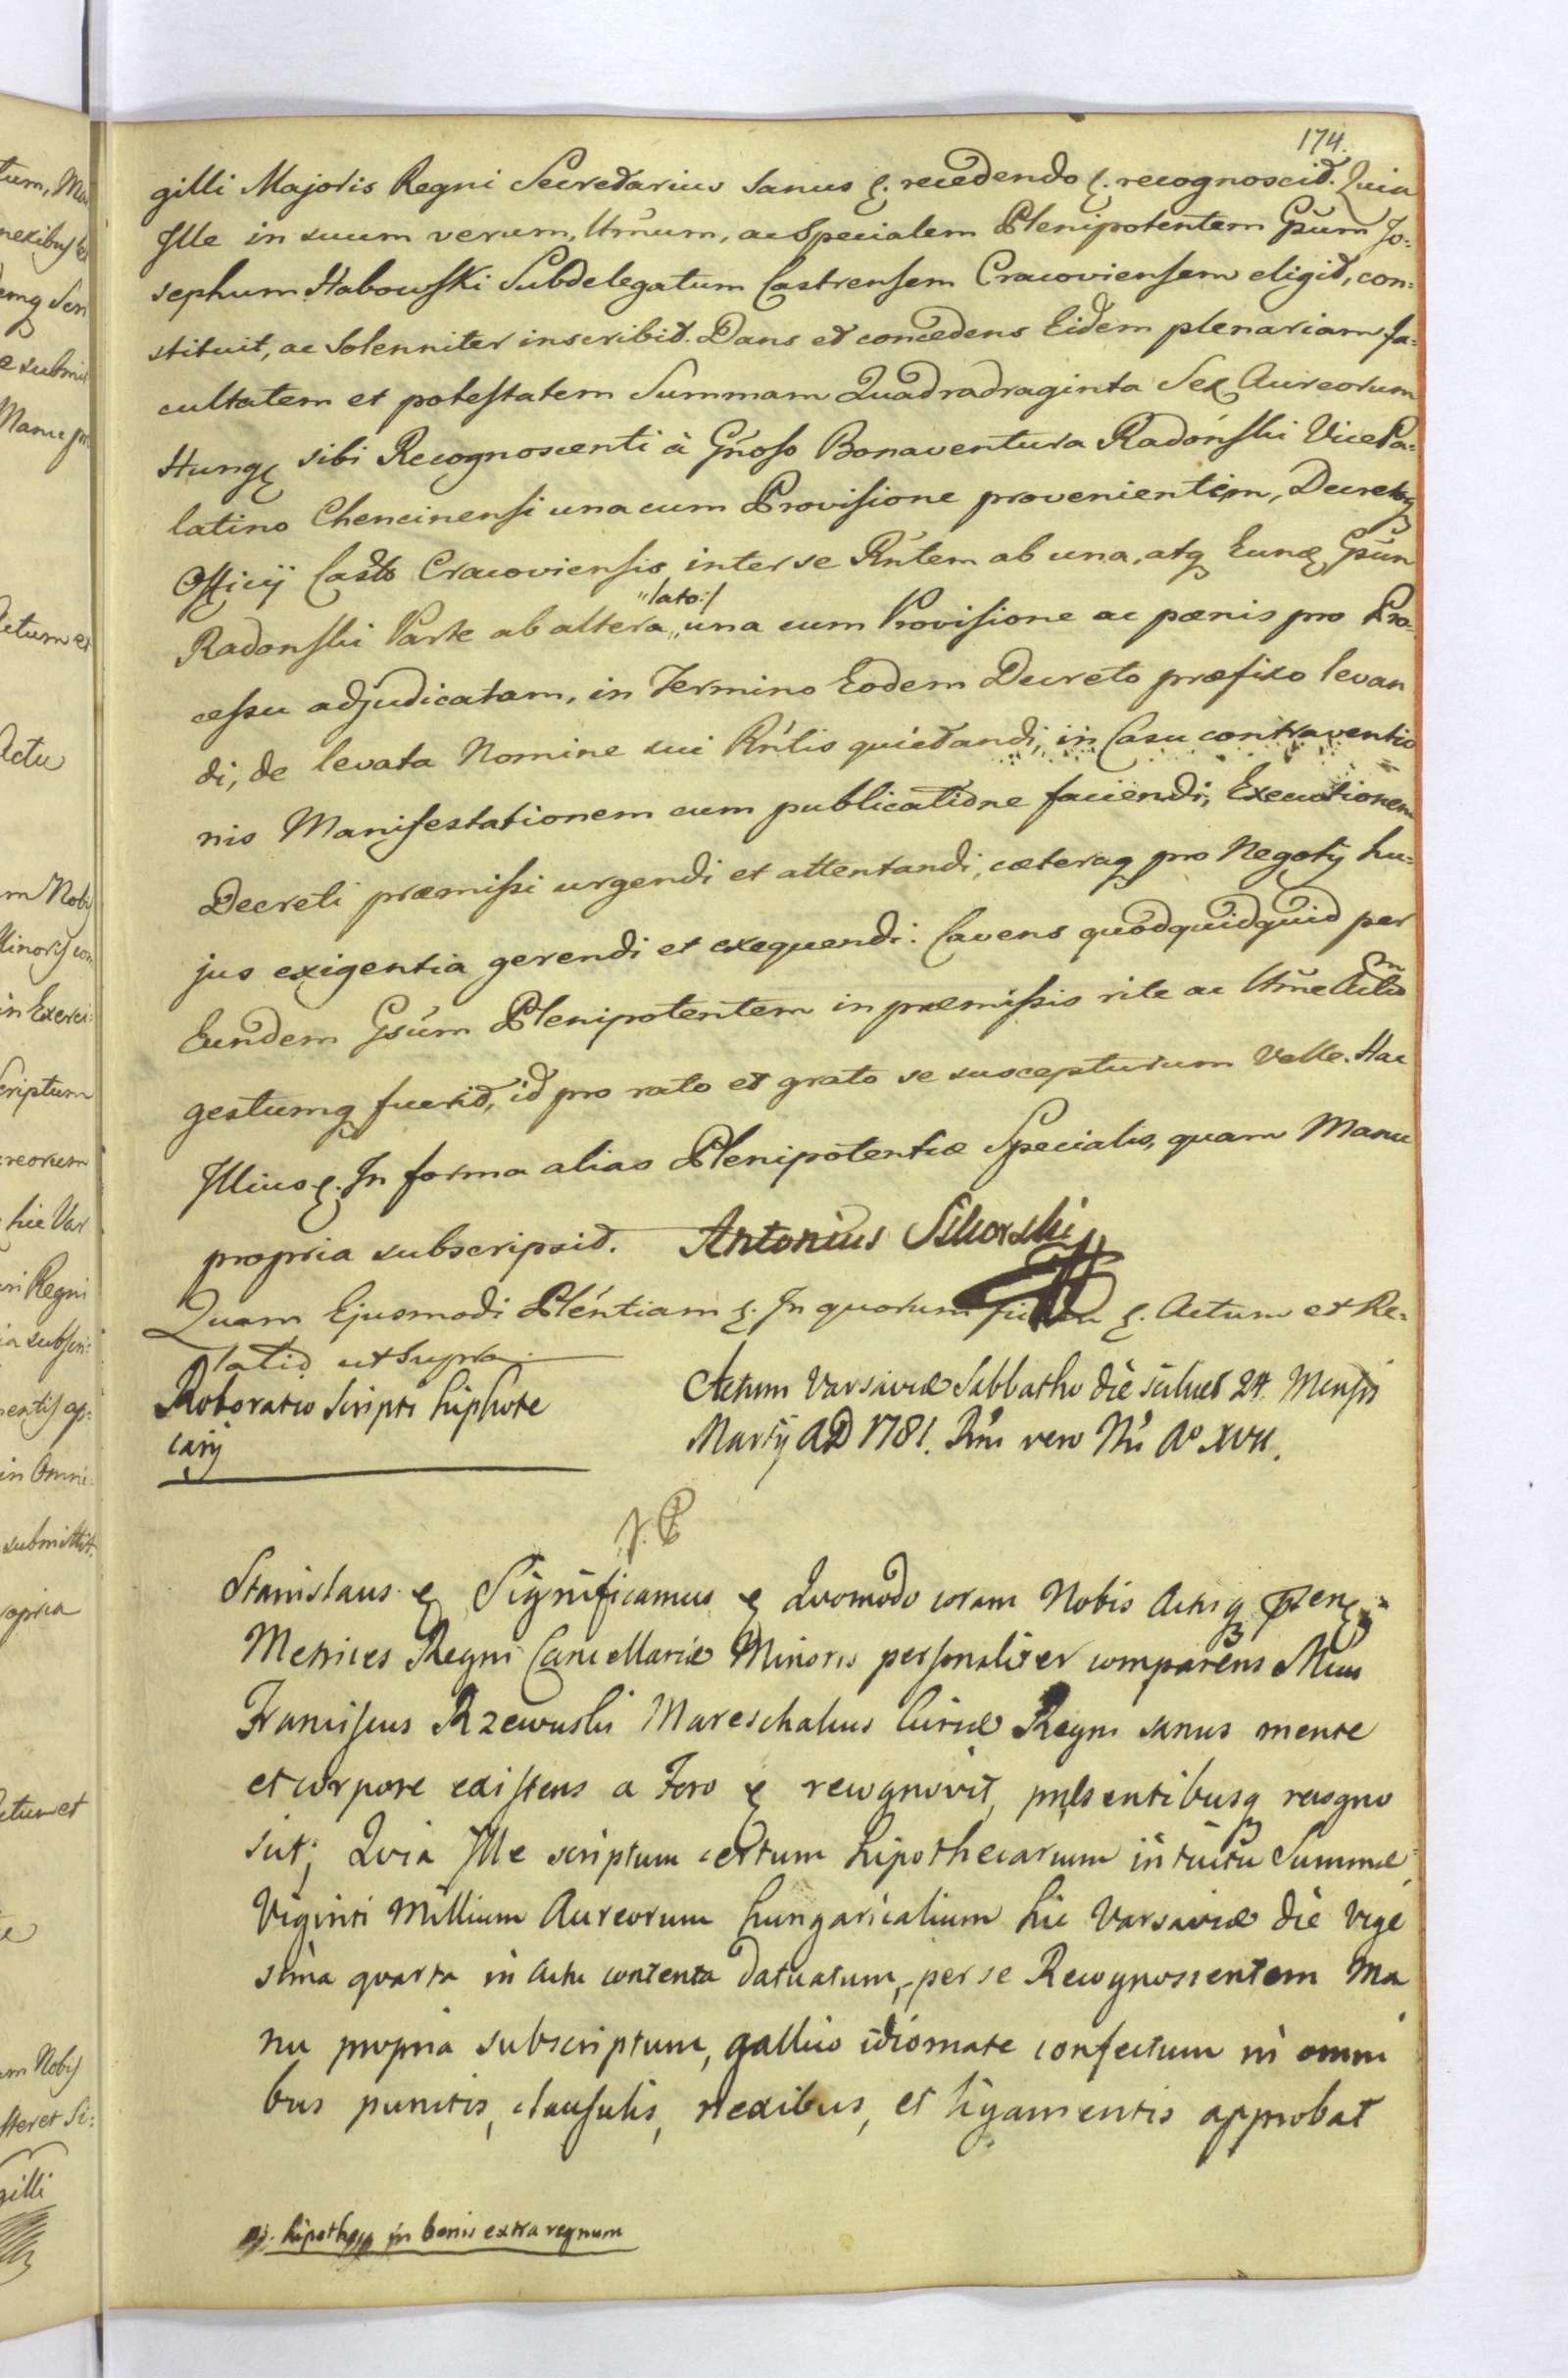 174.
gilli Majoris Regni Secretarius Sanus &. recedendo &. recognoscit. Quia
Ille in suum verum, Ltmum, ac Specialem Plenipotentem Gsum Jo:
sephum Habowski Subdelegatum Castrensem Cracoviensem eligit, con:
stituit, ac Solenniter inscribit. Dans et concedens Eidem plenariam fa:
cultatem et potestatem Summam Quadradraginta Sex Aureorum
Hung sibi Recognoscenti à Gnoso Bonaventura Radoński Vice Pa:
latino Chencinensi una cum Provisione provenientem, Decretoq
Officij Castr Cracoviensis inter se Rntem ab una, atq Eund Gsum
Radonski Parte ab altera „lato:/ una cum Provisione ac pœnis pro Pro:
cessu adjudicatam, in Termino Eodem Decreto præfixo levan
di, de levata Nomine sui Rntis quietandi, in Casu contraventio
nis Manifestationem cum publicatione faciendi, Executionem
Decreti præmissi urgendi et attentandi, cæteraq pro Negotij hu:
jus exigentia gerendi et exequendi. Cavens quodquidquid per
Eundem Gsum Plenipotentem in præmissis rite ac Ltme Actum
gestumq fuerit, id pro rato et grato se suscepturum Velle. Hac
Illius &. In forma alias Plenipotentiæ Specialis, quam Manu
propria subscripsit. Antonius Sikorski
Quam Ejusmodi Plentiam &. In quorum fidem &. Actum et Re:
latio ut Supra.
Roboratio Scripti hiphote
carij
Actum Varsaviæ Sabbatho die scilicet 24. Mensis
Martij AD 1781. Rni vero Nri Ao XVII.
Stanislaus & Significamus & Quomodo coram Nobis Actisq
Metrices Regni Cancellariæ Minoris personaliter comparens Mcus
Franciscus Rzewuski Mareschalus Curiæ Regni sanus mente
et corpore existens a Foro & recognovit, præsentibusq recogno
scit; Quia Ille scriptum certum hipothecarium intuitu Summæ
Viginti Millium Aureorum hungaricalium hic Varsaviæ die vige
sima quarta in actu contenta datuatum, per se Recognoscentem Ma
nu propria subscriptum, gallico idiomate confectum in omni
bus punctis, clausulis, nexibus, et ligamentis approbat
hipotheca in bonis extra regnum